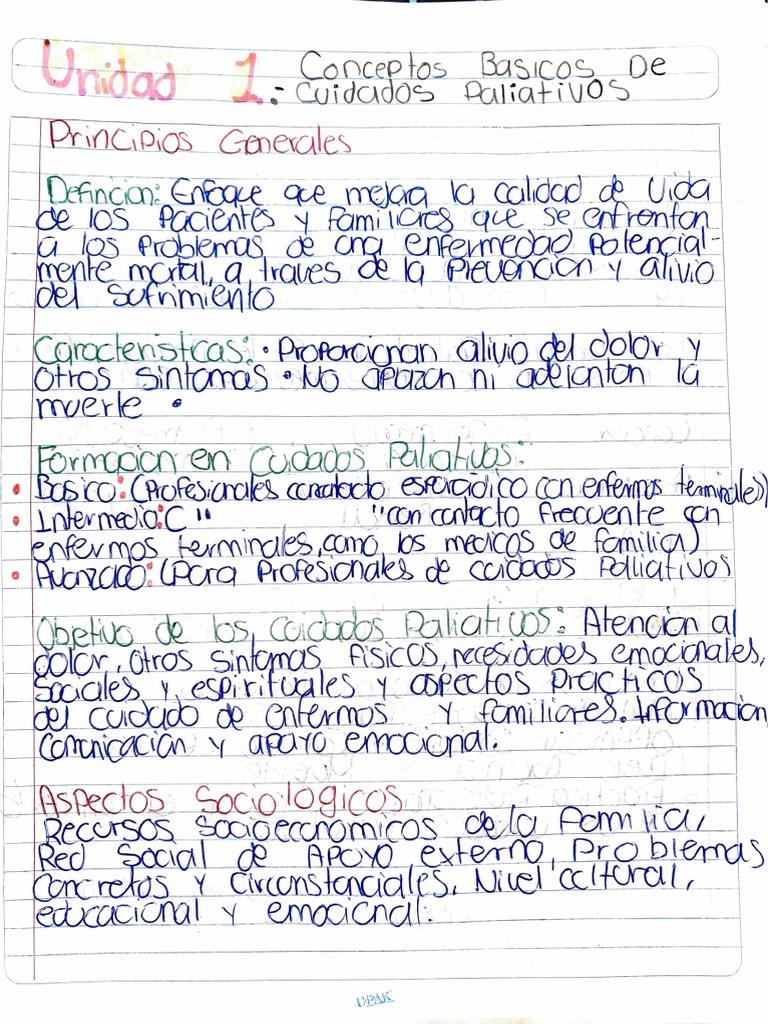 Unidad 1.- Conceptos Basicos De
Cuidados Paliativos
Principios Generales
Definicion: Enfoque que mejora la calidad de vida
de los Pacientes y familiares que se enfrentan
a los problemas de una enfermedad potencial-
mente mortal, a traves de la Prevención y alivio
del sufrimiento
Caracteristicas: • Proporcionan alivio del dolor y
otros sintomas • No apazan ni adelantan la
muerte •
Formacion en Cuidados Paliativos:
• Basico: (Profesionales con contacto esporgidico con enfermos terminales)
• Intermedio: ( " " con contacto frecuente con
enfermos terminales, como los medicos de familia)
• Avanzado: (Para Profesionales de cuidados Palliativos
Objetivo de los Cuidados Paliativos: Atencion al
dolor, otros sintomas físicos, necesidades emocionales,
sociales y espirituales y aspectos practicos
del cuidado de enfermos y familiares. Informacion
comunicación y apoyo emocional.
Aspectos Sociologicos
Recursos Socioeconomicos de la familia,
Red Social de Apoyo externo, Problemas
Concretos y Circonstanciales, Nivel cultural,
educacional y emocional.
UPAK